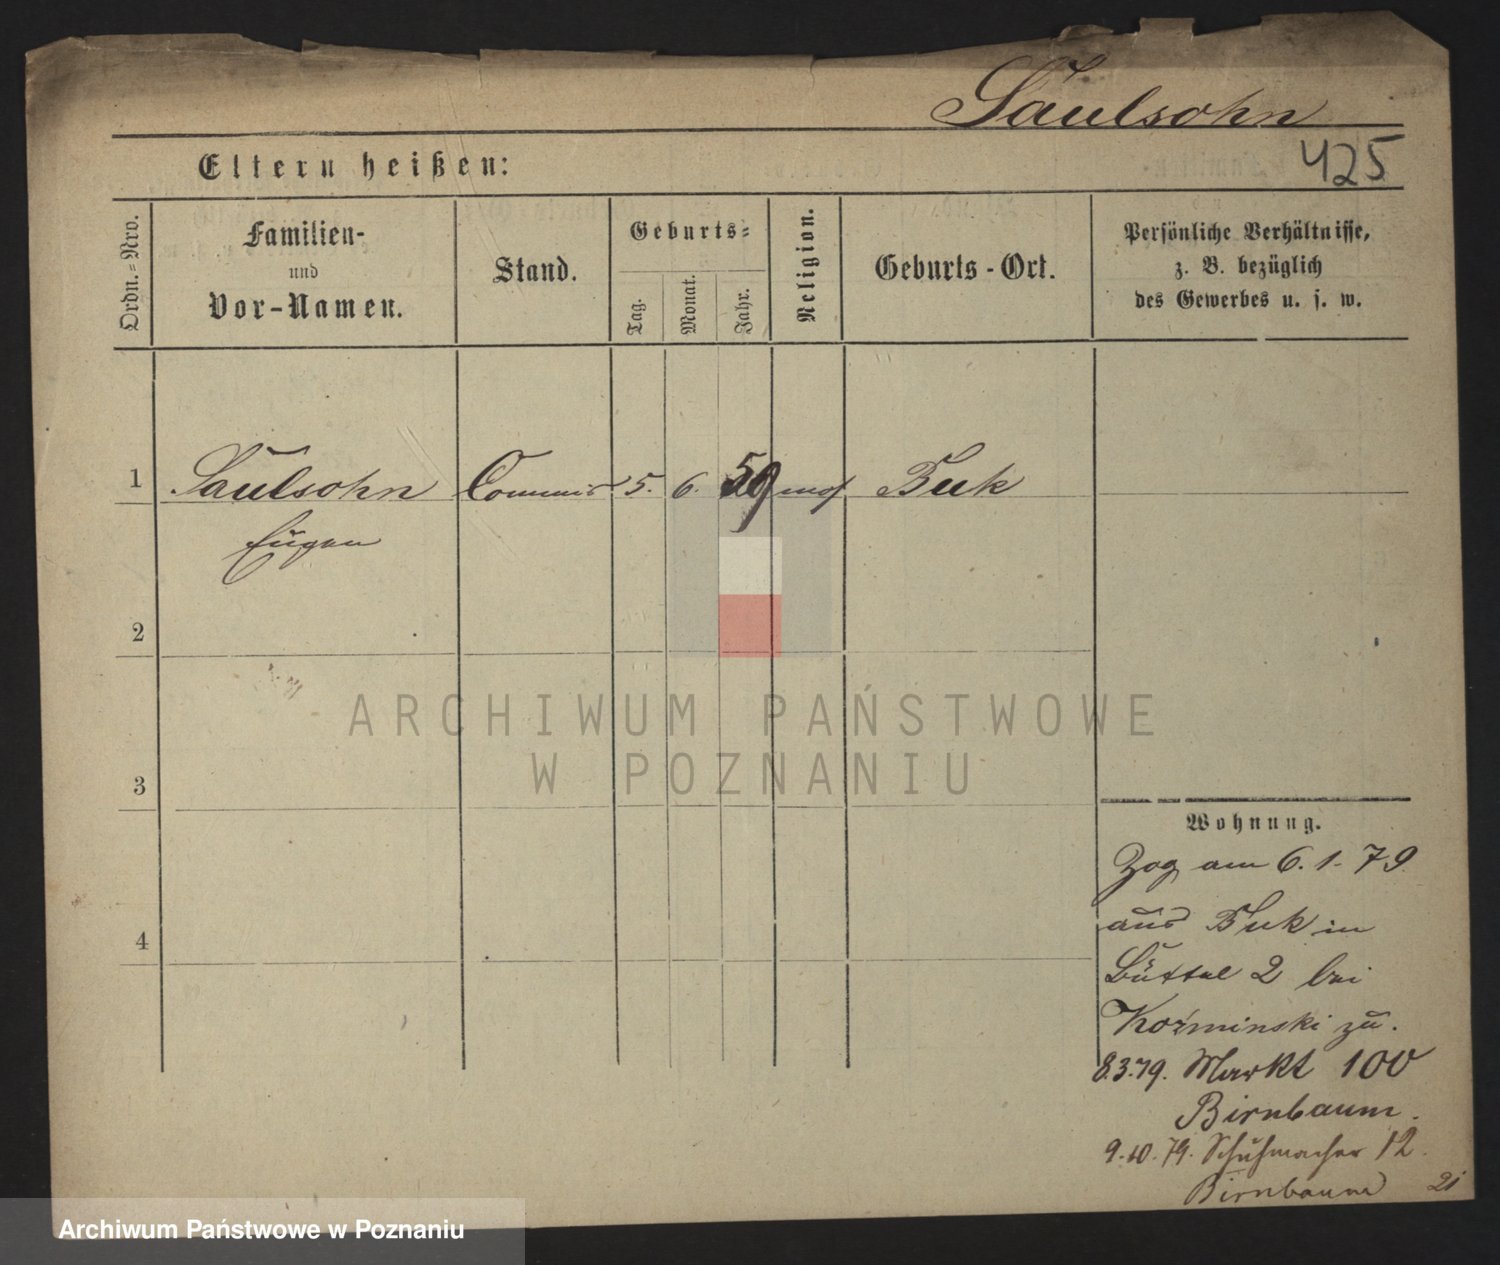 Saulsohn
425
Eltern heißen:
Ordn.=Nro.
Familien-
und
Vor-Namen.
Stand.
Geburts=
Tag.
Monat.
Jahr.
Religion.
Geburts-Ort.
Persönliche Verhältnisse,
z. B. bezüglich
des Gewerbes u. s. w.
1 Saulsohn Commis 5. 6. 59 mos Buk
Eugen
2
3
4
Wohnung.
Zog am 6. 1. 79
aus Buk in
Büttel 2 bei
Koźminski zu.
8.3.79. Markt 100
Birnbaum.
9.10.79. Schuhmacher 12.
Birnbaum
21
ARCHIWUM PAŃSTWOWE
W POZNANIU
Archiwum Państwowe w Poznaniu